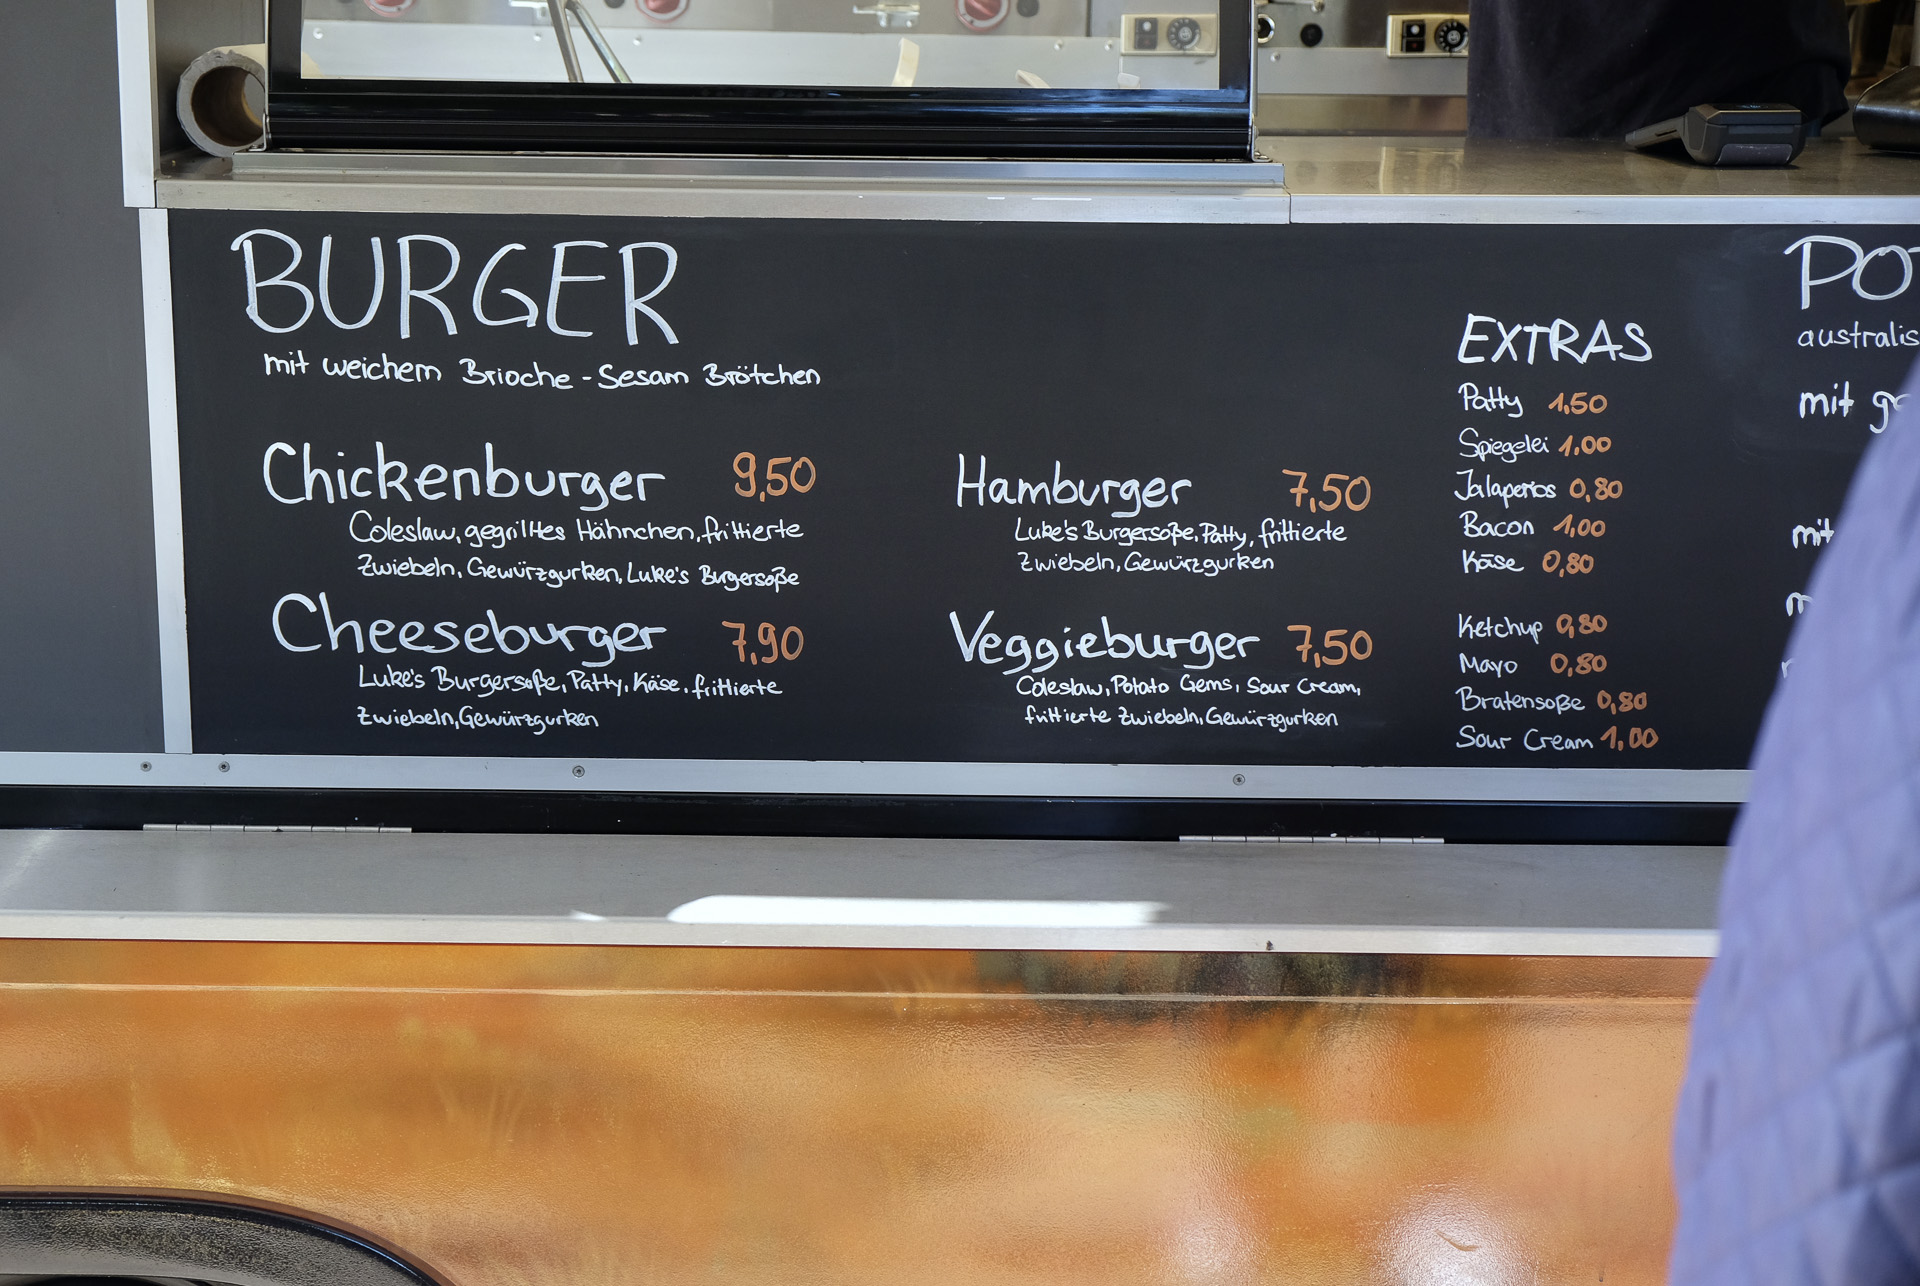 BURGER
mit weichem Brioche - Sesam Brötchen
Chickenburger 9,50
Coleslaw, gegrilltes Hähnchen, frittierte
Zwiebeln, Gewürzgurken, Luke's Burgersoße
Cheeseburger 7,90
Luke's Burgersoße, Patty, Käse, frittierte
Zwiebeln, Gewürzgurken
Hamburger 7,50
Luke's Burgersoße, Patty, frittierte
Zwiebeln, Gewürzgurken
Veggieburger 7,50
Coleslaw, Potato Gems, Sour Cream,
frittierte Zwiebeln, Gewürzgurken
EXTRAS
Patty 1,50
Spiegelei 1,00
Jalapeños 0,80
Bacon 1,00
Käse 0,80
Ketchup 0,80
Mayo 0,80
Bratensoße 0,80
Sour Cream 1,00
PO
australis
mit
mit